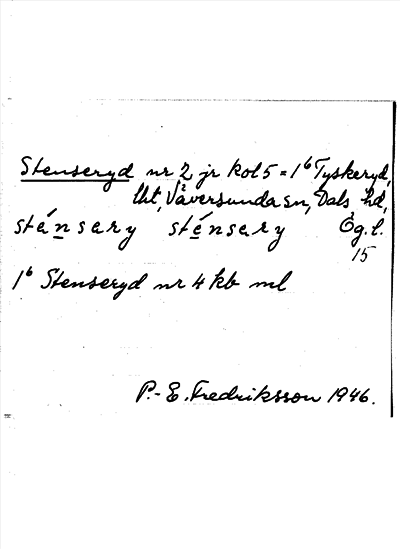 Stenseryd nr 2, jr kol 5 = 1⁶ Tyskeryd,
tht, Väversunda sn, Dals hd,
sténsery sténsery Ög. l.
15
1⁶ Stenseryd nr 4 kb ml
P.-E. Fredriksson 1946.